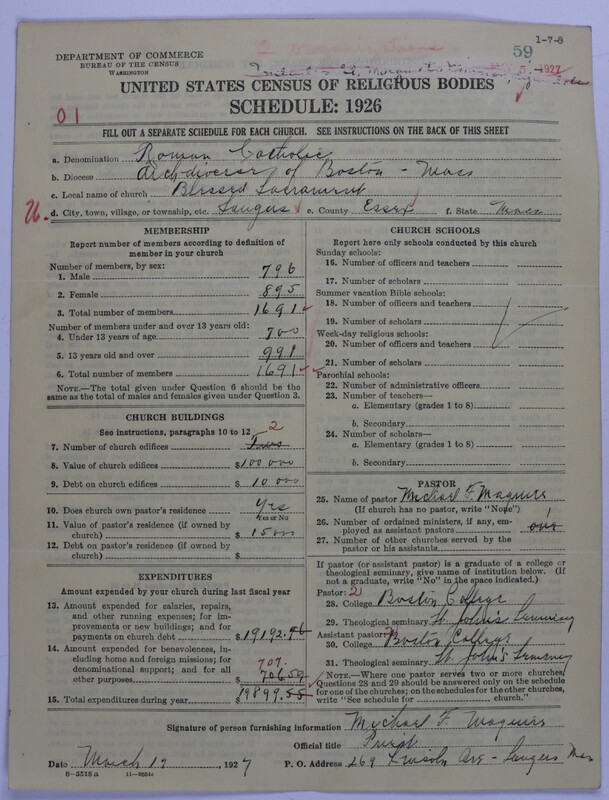 1-7-8
59
DEPARTMENT OF COMMERCE
BUREAU OF THE CENSUS
WASHINGTON
UNITED STATES CENSUS OF RELIGIOUS BODIES
SCHEDULE: 1926
01
FILL OUT A SEPARATE SCHEDULE FOR EACH CHURCH. SEE INSTRUCTIONS ON THE BACK OF THIS SHEET
a. Denomination Roman Catholic
b. Diocese Archdiocese of Boston - Mass
c. Local name of church Blessed Sacrament
d. City, town, village, or township, etc. Saugus e. County Essex f. State Mass
MEMBERSHIP
Report number of members according to definition of
member in your church
Number of members, by sex:
1. Male 796
2. Female 895
3. Total number of members 1691
Number of members under and over 13 years old:
4. Under 13 years of age 700
5. 13 years old and over 991
6. Total number of members 1691
NOTE.—The total given under Question 6 should be
the same as the total of males and females given under Question 3.
CHURCH BUILDINGS
See instructions, paragraphs 10 to 12
7. Number of church edifices Two 2
8. Value of church edifices $100000
9. Debt on church edifices $10000
10. Does church own pastor's residence? Yes
Yes or No
11. Value of pastor's residence (if owned by
church) $15000
12. Debt on pastor's residence (if owned by
church) $
EXPENDITURES
Amount expended by your church during last fiscal year
13. Amount expended for salaries, repairs,
and other running expenses; for im-
provements or new buildings; and for
payments on church debt $19192.
14. Amount expended for benevolences,
including home and foreign missions; for
denominational support; and for all
other purposes $ 706.59 707.
15. Total expenditures during year $19899.55
CHURCH SCHOOLS
Report here only schools conducted by this church
Sunday schools:
16. Number of officers and teachers
17. Number of scholars
Summer vacation Bible schools:
18. Number of officers and teachers
19. Number of scholars
Week-day religious schools:
20. Number of officers and teachers
21. Number of scholars
Parochial schools:
22. Number of administrative officers
23. Number of teachers—
a. Elementary (grades 1 to 8)
b. Secondary
24. Number of scholars—
a. Elementary (grades 1 to 8)
b. Secondary
PASTOR
25. Name of pastor Michael F. Maguire
(If church has no pastor, write "None")
26. Number of ordained ministers, if any, em-
ployed as assistant pastors one 1
27. Number of other churches served by the
pastor or his assistants
If pastor (or assistant pastor) is a graduate of a college or
theological seminary, give name of institution below. (If
not a graduate, write "No" in the space indicated.)
Pastor: 2
28. College Boston College
29. Theological seminary St. John's Seminary
Assistant pastor:
30. College Boston College
31. Theological seminary St. John's Seminary
NOTE.—Where one pastor serves two or more churches,
Questions 28 and 29 should be answered only on the schedule
for one of the churches; on the schedules for the other churches,
write "See schedule for church."
Signature of person furnishing information Michael F. Maguire
Official title Priest
Date March 17, 1927 P. O. Address 269 Lincoln Ave - Saugus Mass